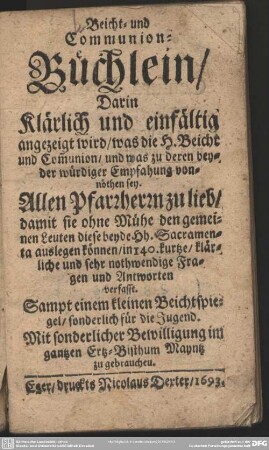 Beicht- und
Communion-
Büchlein/
Darin
Klärlich und einfältig
angezeigt wird/ was die H. Beicht
und Com̅union/ und was zu deren bey-
der würdiger Empfahung von-
nöthen sey.
Allen Pfarzherrn zu lieb/
damit sie ohne Mühe den gemei-
nen Leuten diese beyde Hh. Sacramen-
ta auslegen können/ in 140. kurtze/ klär-
liche und sehr nothwendige Fra-
gen und Antworten
verfasst.
Sampt einem kleinen Beichtspie-
gel/ sonderlich für die Jugend.
Mit sonderlicher Bewilligung im
gantzen Ertz-Bisthum Mayntz
zu gebrauchen.
Eger/ druckts Nicolaus Derter/ 1693.
DFG